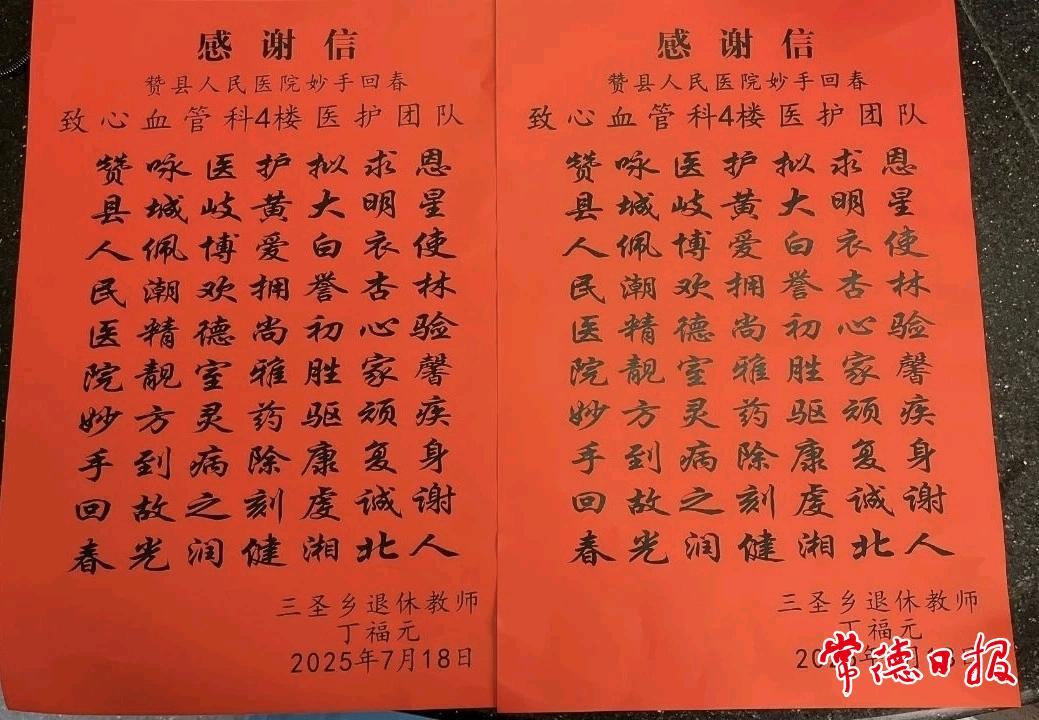 感谢信
赞县人民医院妙手回春
致心血管科4楼医护团队
赞咏医护拟求恩
县城岐黄大明星
人佩博爱白衣使
民潮欢拥誉杏林
医精德尚初心验
院靓室雅胜家馨
妙方灵药驱顽疾
手到病除康复身
回故之刻虔诚谢
春光润健湘北人
三圣乡退休教师
丁福元
2025年7月18日
感谢信
赞县人民医院妙手回春
致心血管科4楼医护团队
赞咏医护拟求恩
县城岐黄大明星
人佩博爱白衣使
民潮欢拥誉杏林
医精德尚初心验
院靓室雅胜家馨
妙方灵药驱顽疾
手到病除康复身
回故之刻虔诚谢
春光润健湘北人
三圣乡退休教师
丁福元
常德日报